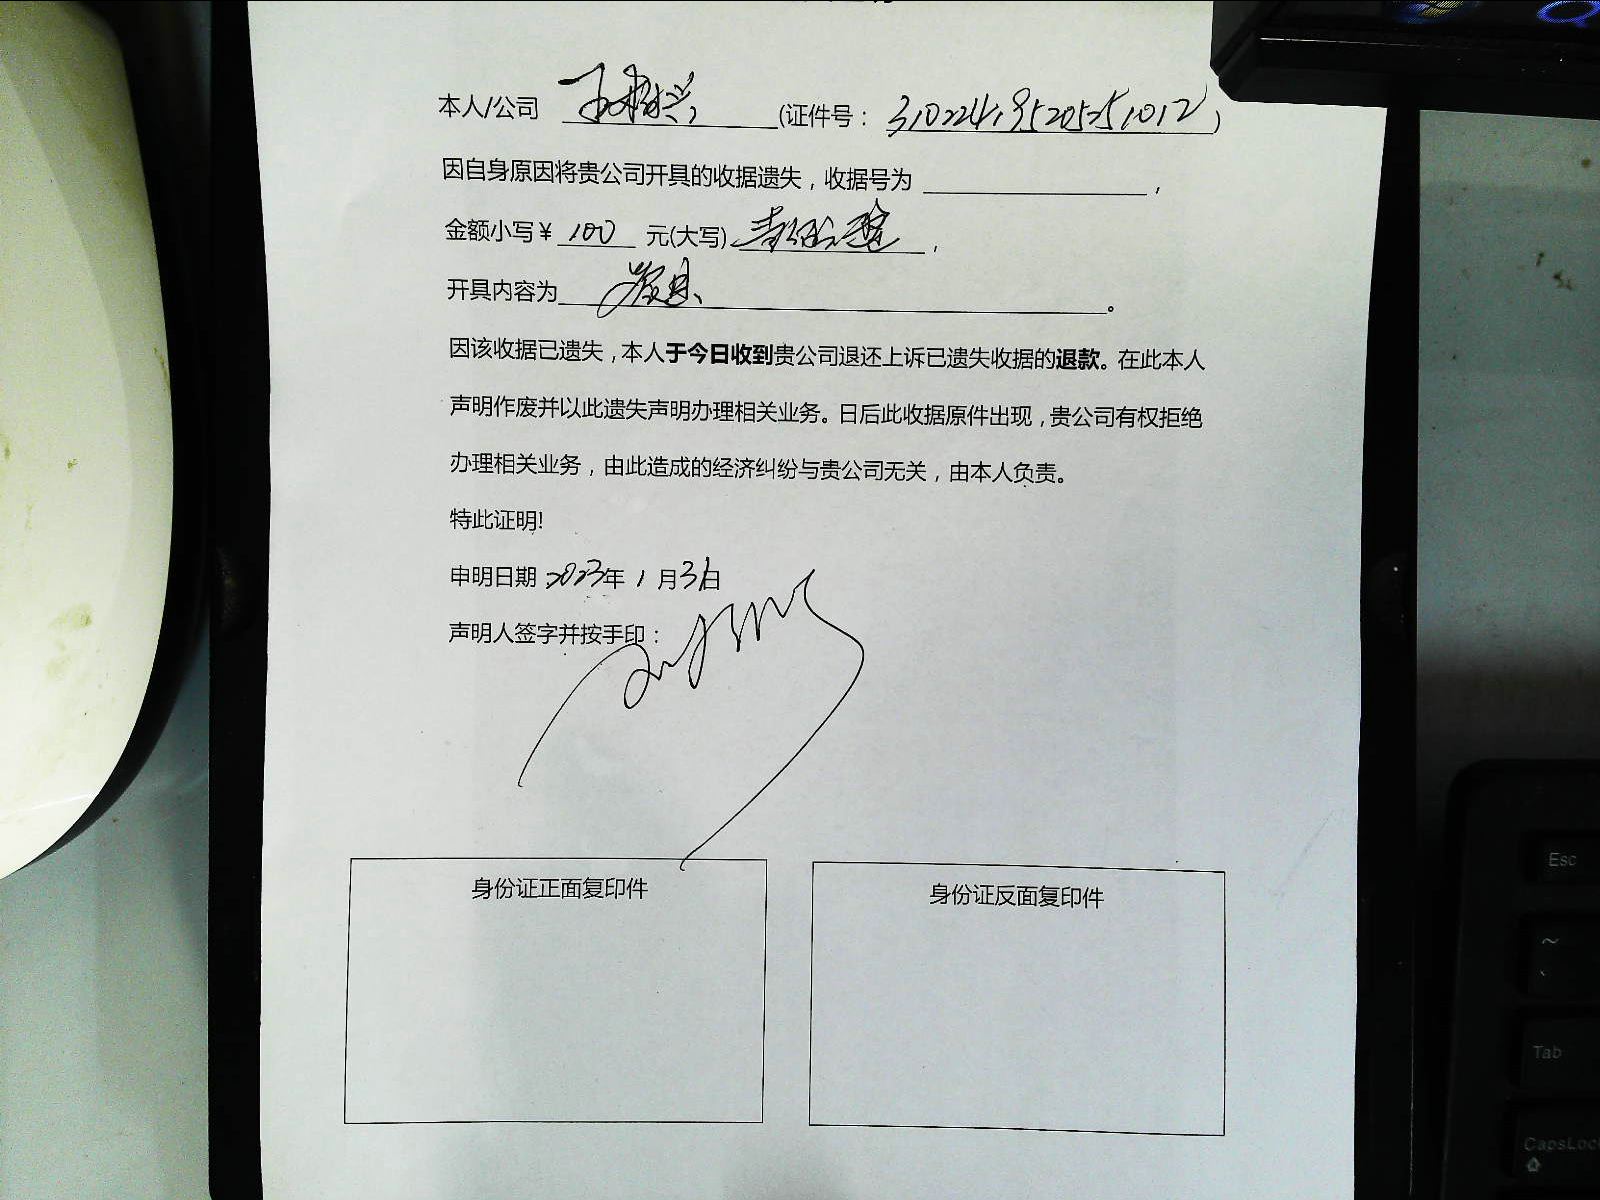 本人/公司 (证件号：310224195205251012)
因自身原因将贵公司开具的收据遗失，收据号为 ，
金额小写¥ 100 元(大写) 壹佰元整 ，
开具内容为 。
因该收据已遗失，本人于今日收到贵公司退还上诉已遗失收据的退款。在此本人
声明作废并以此遗失声明办理相关业务。日后此收据原件出现，贵公司有权拒绝
办理相关业务，由此造成的经济纠纷与贵公司无关，由本人负责。
特此证明!
申明日期 2023年 1 月31日
声明人签字并按手印：
身份证正面复印件
身份证反面复印件
Esc
~
Tab
CapsLoc